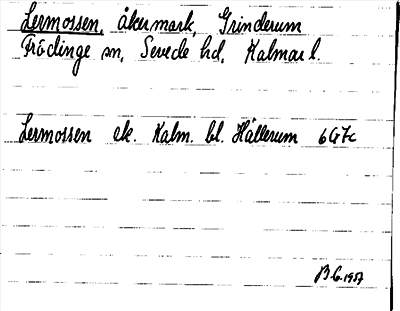 Lermossen, åkermark, Grinderum
Frödinge sn, Sevede hd, Kalmar l.
Lermossen ek. Kalm. bl. Hällerum 6G7c
B.G. 1957